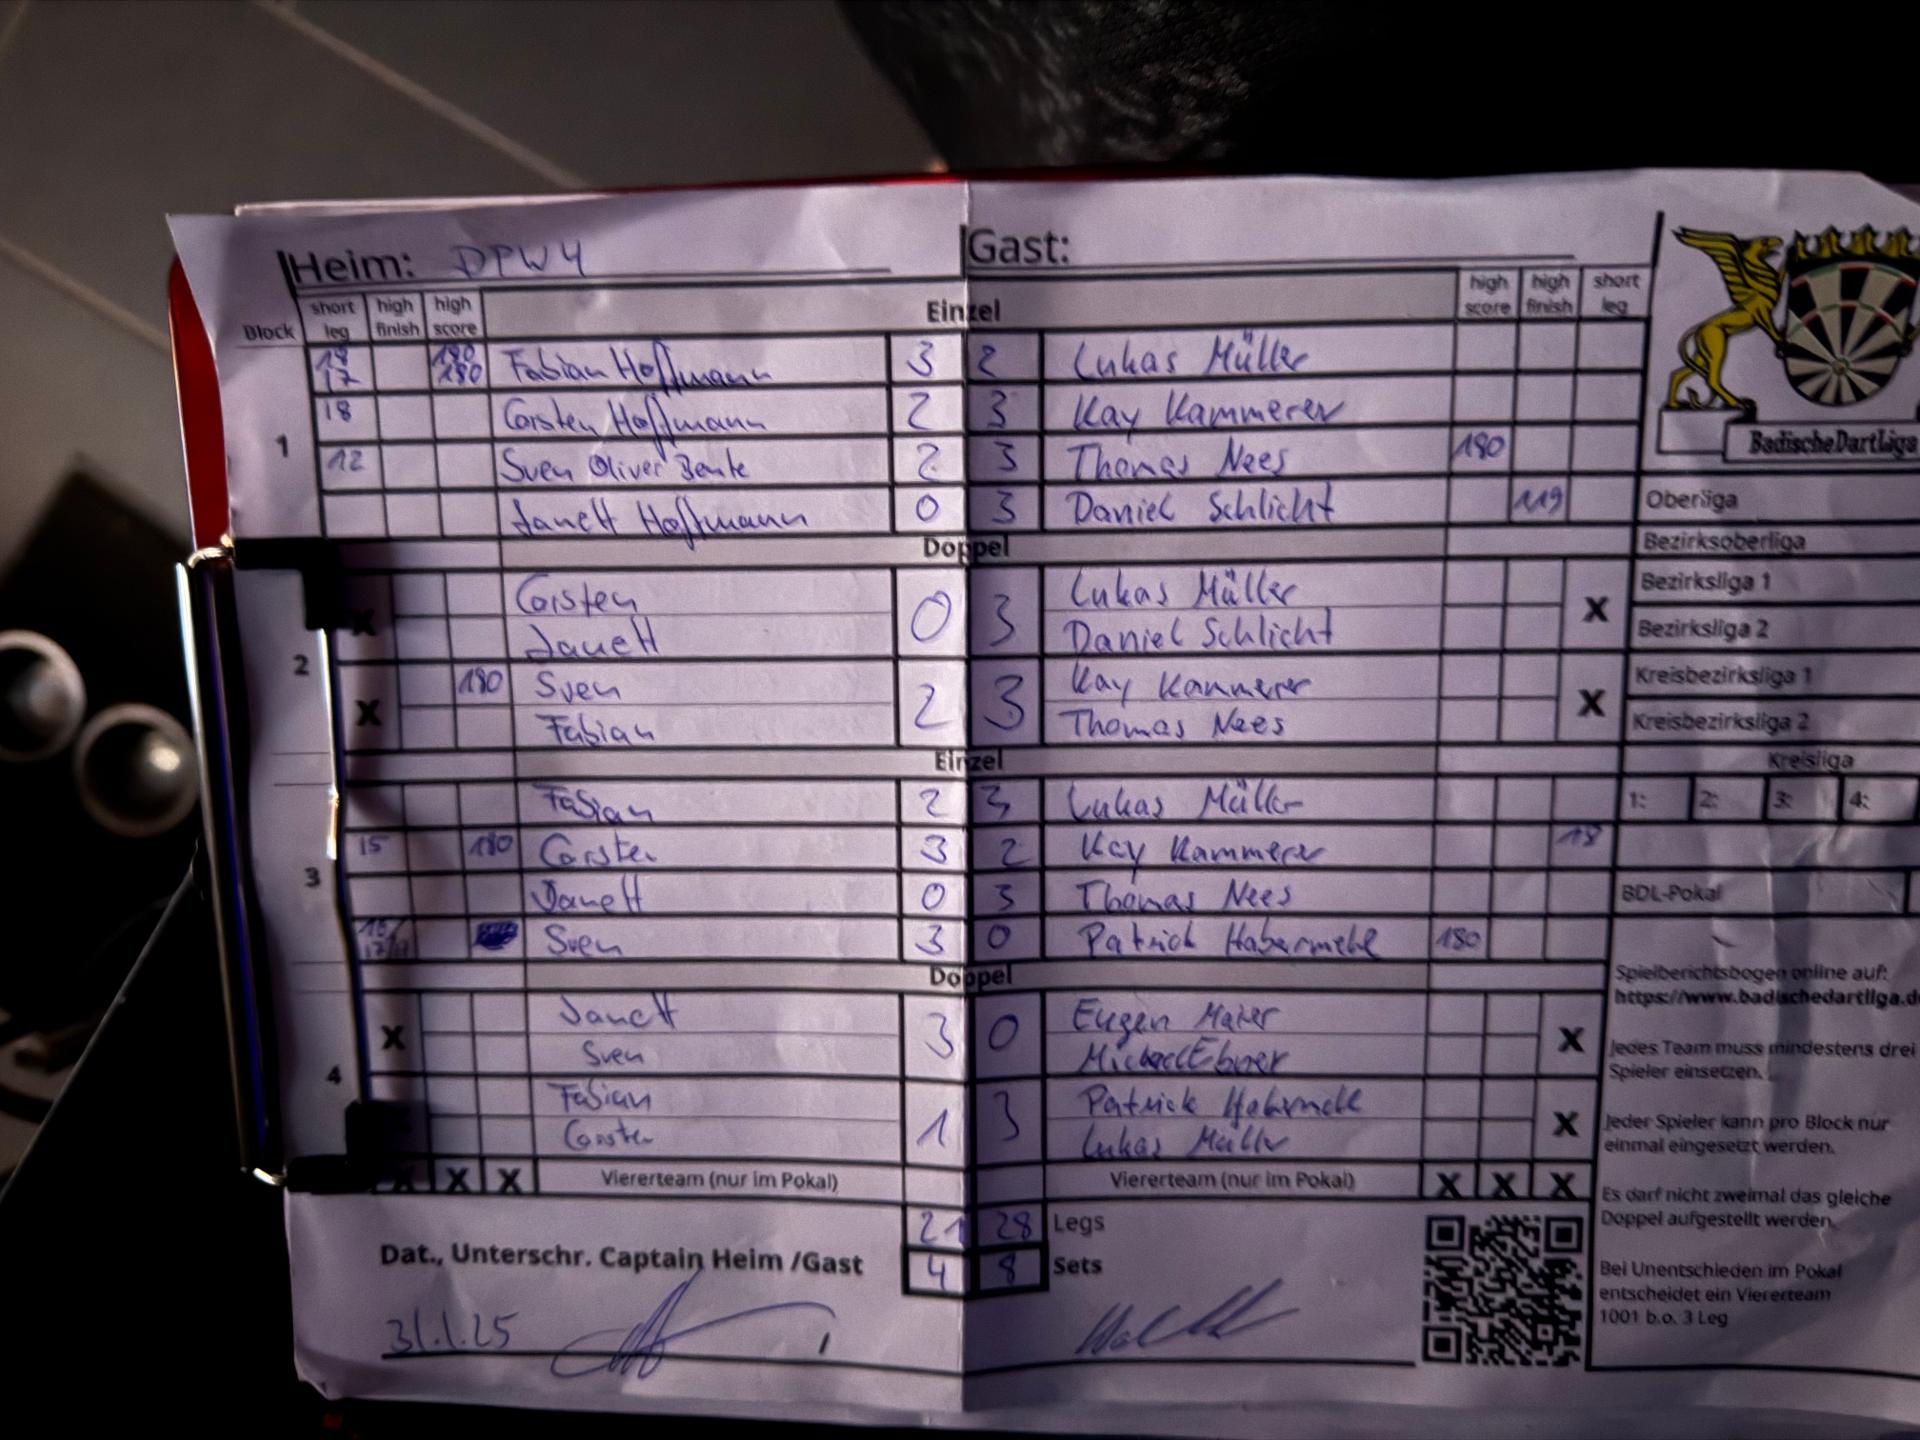 Heim: DPW4 Gast:
Block short leg high finish high score Einzel high score high finish short leg
1
18 17 180 180 Fabian Hoffmann 3 2 Lukas Müller
18 Corsten Hoffmann 2 3 Kay Kammerer
12 Sven Oliver 2 3 Thomas Nees 180
Janett Hoffmann 0 3 Daniel Schlicht 119
Doppel
2
Corsten 0 3 Lukas Müller
X Janett Daniel Schlicht X
180 Sven 2 3 Kay Kammerer
X Fabian Thomas Nees X
Einzel
3
Fabian 2 3 Lukas Müller
15 180 Corsten 3 2 Kay Kammerer 18
Janett 0 3 Thomas Nees
Sven 3 0 Patrick Habermehl 180
Doppel
4
X Janett 3 0 Eugen Maier X
Sven Michael Ebner
Fabian 1 3 Patrick Habermehl X
Corsten Lukas Müller
X X X Viererteam (nur im Pokal) Viererteam (nur im Pokal) X X X
21 28 Legs
4 8 Sets
Dat., Unterschr. Captain Heim /Gast
31.1.25
BadischeDartLiga
Oberliga
Bezirksoberliga
Bezirksliga 1
Bezirksliga 2
Kreisbezirksliga 1
Kreisbezirksliga 2
Kreisliga
1: 2: 3: 4:
BDL-Pokal
Spielberichtsbogen online auf:
https://www.badischedartliga.d
Jedes Team muss mindestens drei
Spieler einsetzen.
Jeder Spieler kann pro Block nur
einmal eingesetzt werden.
Es darf nicht zweimal das gleiche
Doppel aufgestellt werden.
Bei Unentschieden im Pokal
entscheidet ein Viererteam
1001 b.o. 3 Leg